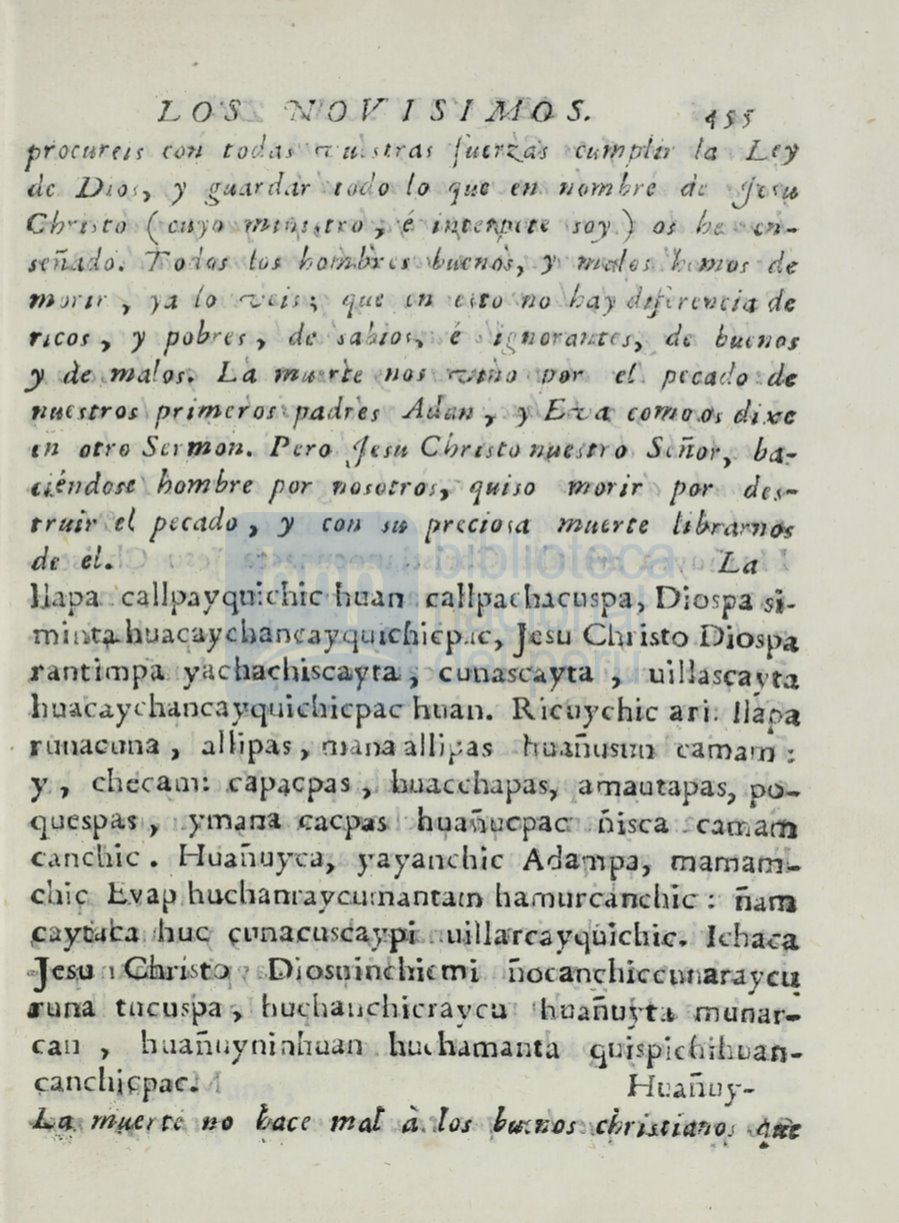 LOS NOVISIMOS. 455
procureis con todas vuestras fuerzas cumplir la Ley
de Dios, y guardar todo lo que en nombre de Jesu
Christo (cuyo ministro, é interpete soy) os he en-
señado. Todos los hombres buenos, y malos hemos de
morir, ya lo veis; que en esto no hay diferencia de
ricos, y pobres, de sabios, é ignorantes, de buenos
y de malos. La muerte nos vino por el pecado de
nuestros primeros padres Adan, y Eva como os dixe
en otro Sermon. Pero Jesu Christo nuestro Señor, ha-
ciéndose hombre por nosotros, quiso morir por des-
truir el pecado, y con su preciosa muerte librarnos
de el. La
llapa callpayquichic huan callpachacuspa, Diospa si-
minta huacaychancayquichicpac, Jesu Christo Diospa
rantimpa yachachiscayta, cunascayta, uillascayta
huacaychancayquichicpac huan. Ricuychic ari: llapa
runacuna, allipas, mana allipas huañusun camam:
y, checam: capacpas, huacchapas, amautapas, po-
quespas, ymana cacpas huañucpac ñisca camam
canchic. Huañuyca, yayanchic Adampa, mamam-
chic Evap huchanraycumantam hamurcanchic: ñam
caytaca huc cunacuscaypi uillarcayquichic. Ichaca
Jesu Christo Diosninchicmi ñocanchiccunaraycu
runa tucuspa, huchanchicraycu huañuyta munar-
can, huañuyninhuan huchamanta quispichihuan-
canchicpac. Huañuy-
La muerte no hace mal à los buenos christianos que
biblioteca